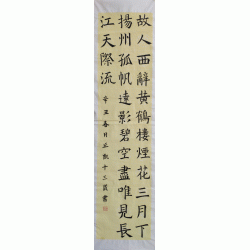 故人西辭黃鶴樓煙花三月下
揚州孤帆遠影碧空盡唯見長
江天際流
辛丑春月十三歲書